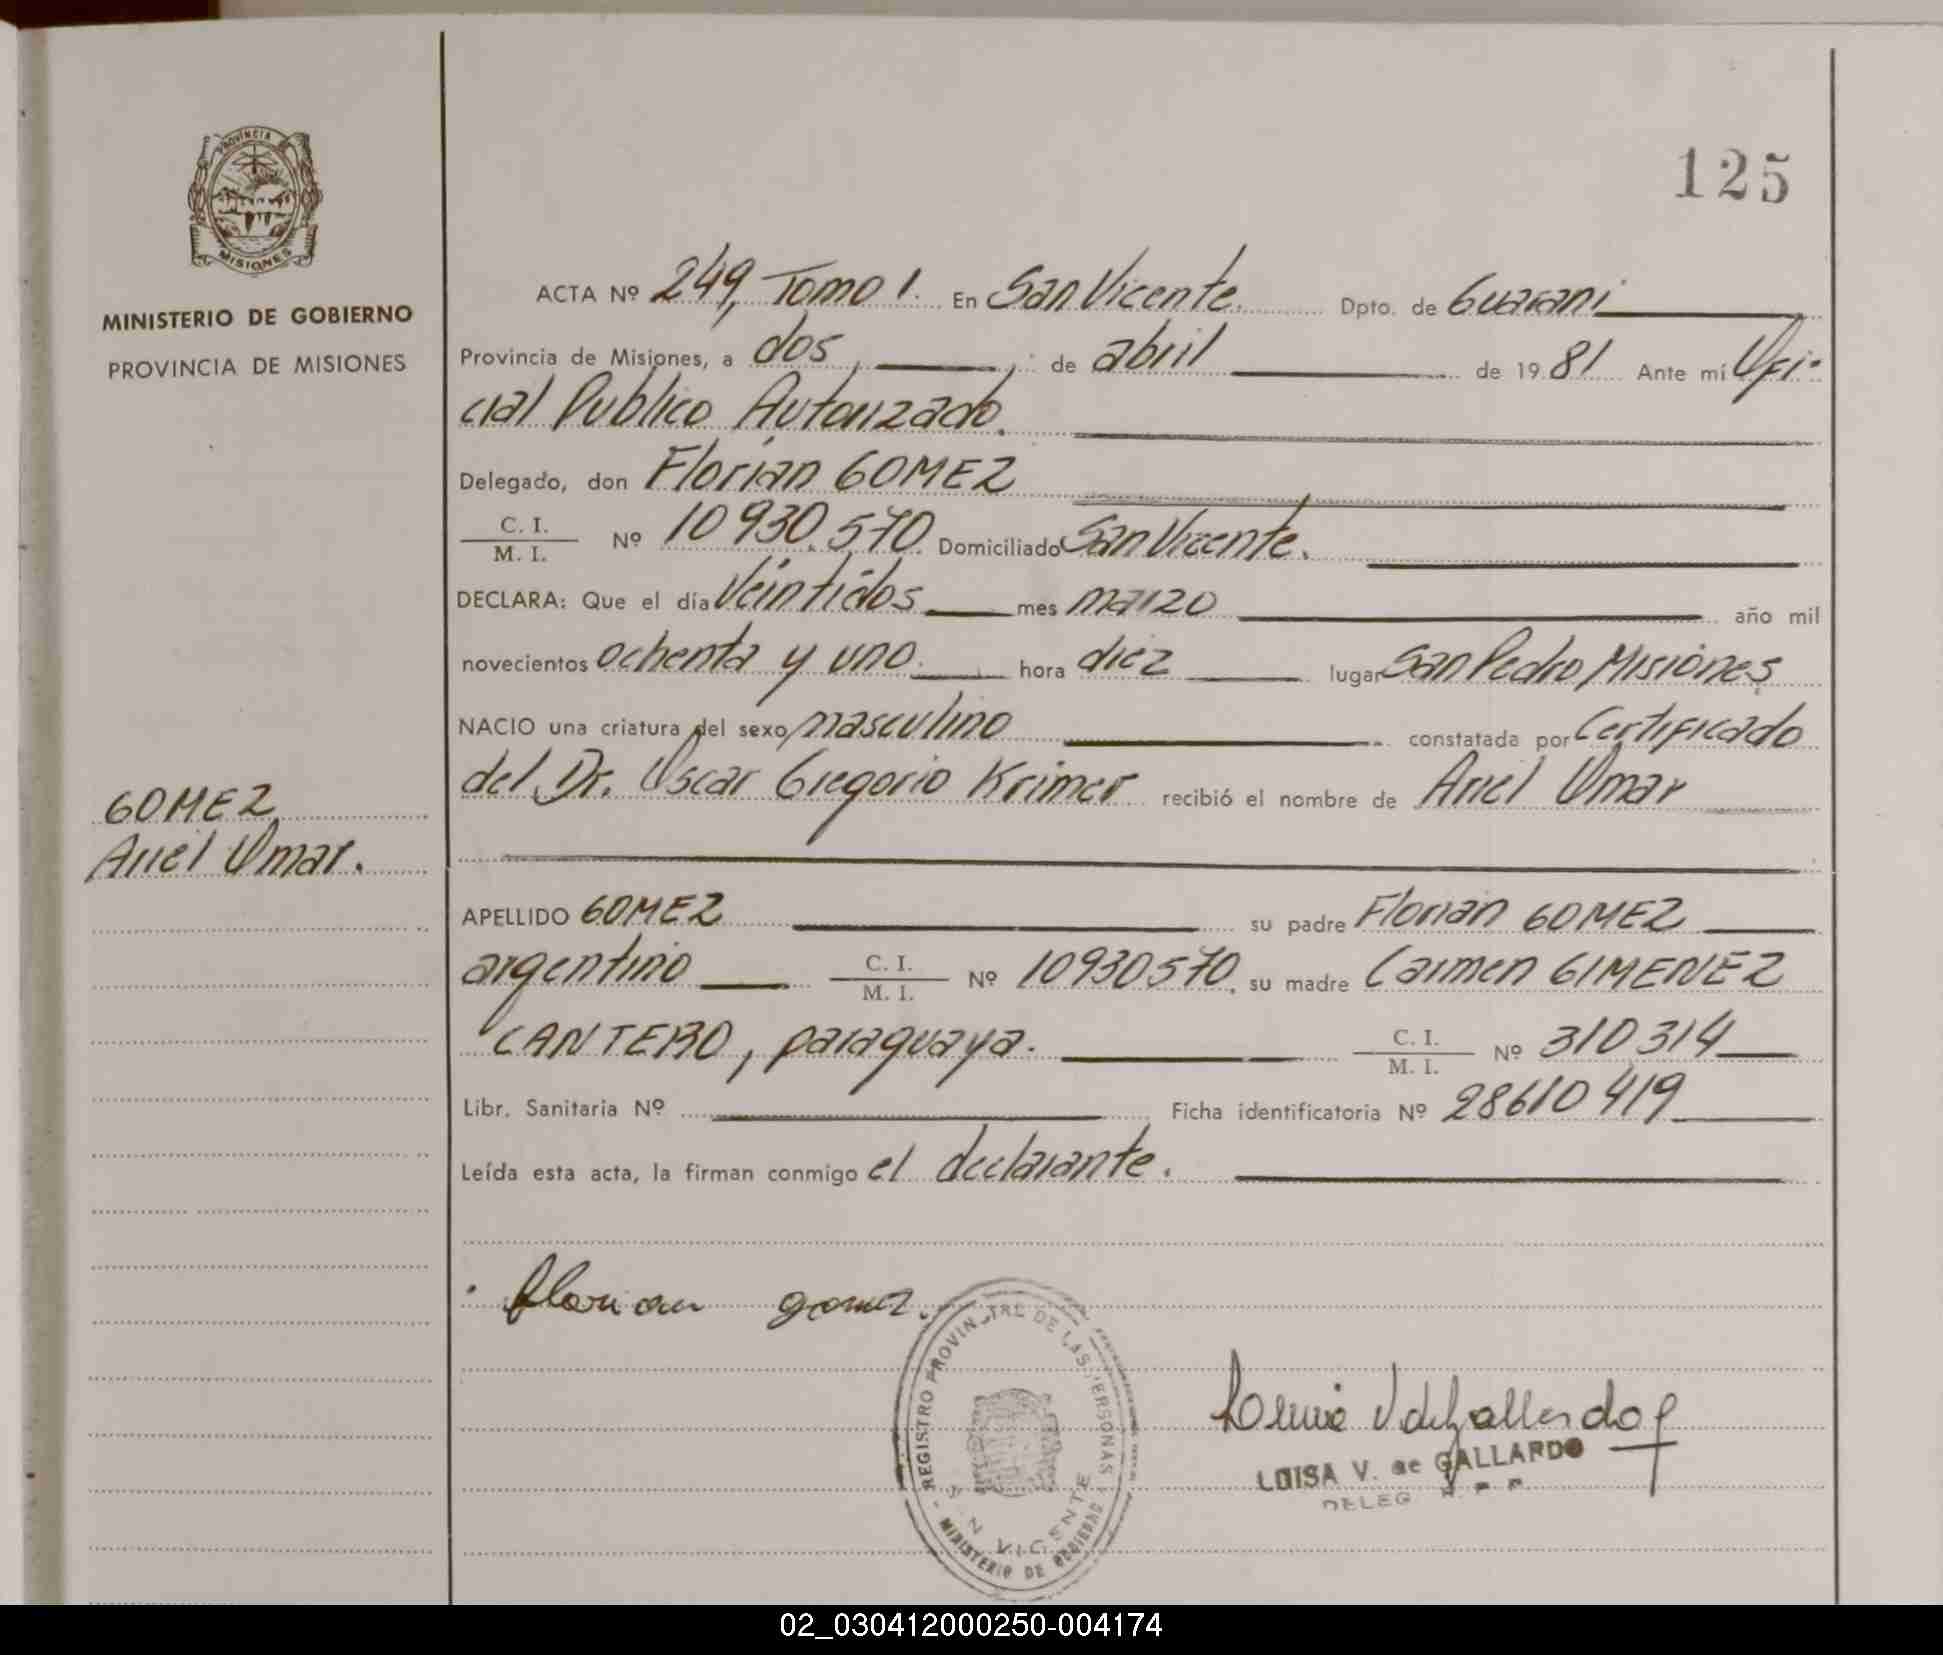 125
PROVINCIA
MISIONES
MINISTERIO DE GOBIERNO
PROVINCIA DE MISIONES
ACTA Nº 249, Tomo 1. En San Vicente. Dpto. de Guarani
Provincia de Misiones, a dos de abril de 1981 Ante mí Ofi-
cial Publico Autorizado.
Delegado, don Florian GOMEZ
C. I.
M. I. Nº 10930.570. Domiciliado San Vicente.
DECLARA: Que el día Veintidos mes marzo año mil
novecientos ochenta y uno. hora diez lugar San Pedro Misiones
NACIO una criatura del sexo masculino constatada por Certificado
del Dr. Oscar Gregorio Krimer recibió el nombre de Ariel Omar
GOMEZ
Ariel Omar.
APELLIDO GOMEZ su padre Florian GOMEZ
argentino C. I.
M. I. Nº 10930570. su madre Carmen GIMENEZ
CANTERO, paraguaya. C. I.
M. I. Nº 310314
Libr. Sanitaria Nº Ficha identificatoria Nº 28610419
Leída esta acta, la firman conmigo el declarante.
florian gomez.
REGISTRO PROVINCIAL DE LAS PERSONAS
SAN VICENTE
MINISTERIO DE GOBIERNO
Luisa V de Gallardo
LUISA V. de GALLARDO
DELEG
02_030412000250-004174